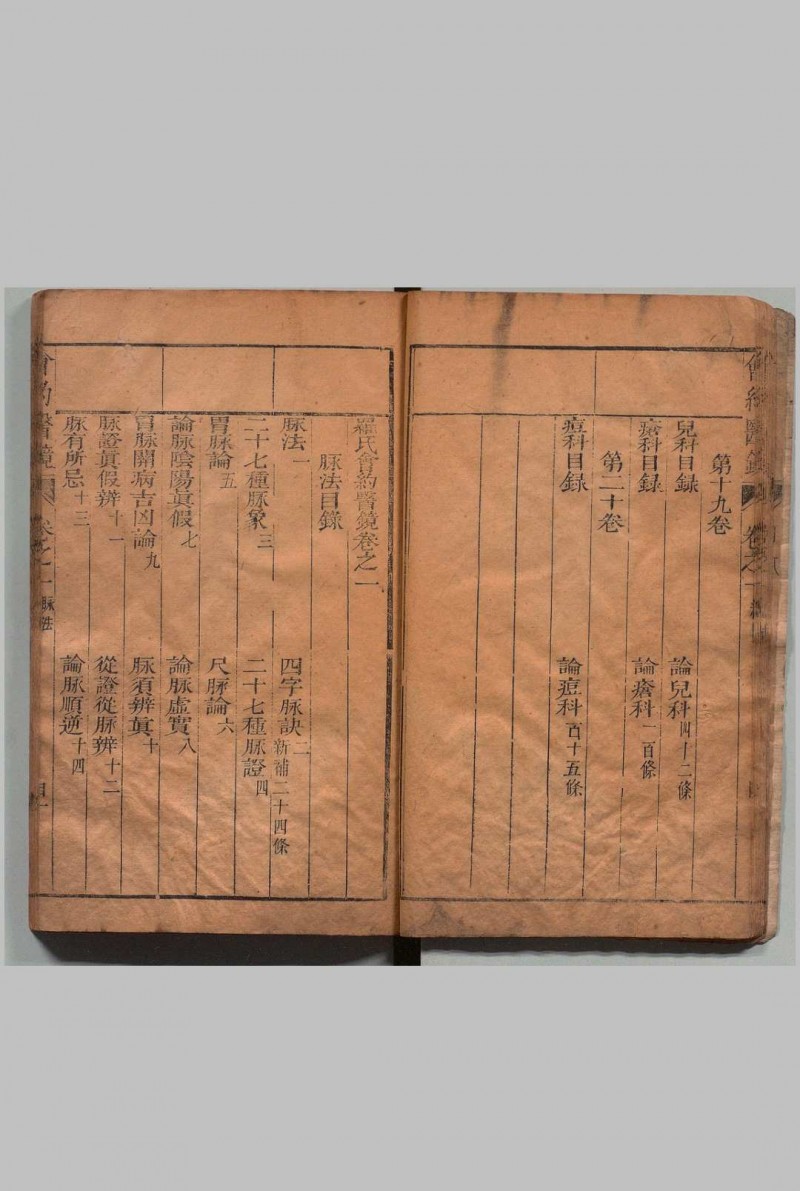 第十九卷
兒科目録 論兒科四十二條
瘡科目録 論瘡科一百條
第二十卷
痘科目録 論痘科百十五條
羅氏會約醫鏡卷之一
脉法目録
脉法一 四字脉訣二 新補二十四條
二十七種脉象三 二十七種脉證四
胃脉論五 尺脉論六
論脉陰陽眞假七 論脉虛實八
胃脉關病吉凶論九 脉須辨眞十
脉證眞假辨十一 從證從脉辨十二
脉有所忌十三 論脉順逆十四
會約醫鏡 卷之一 脉法